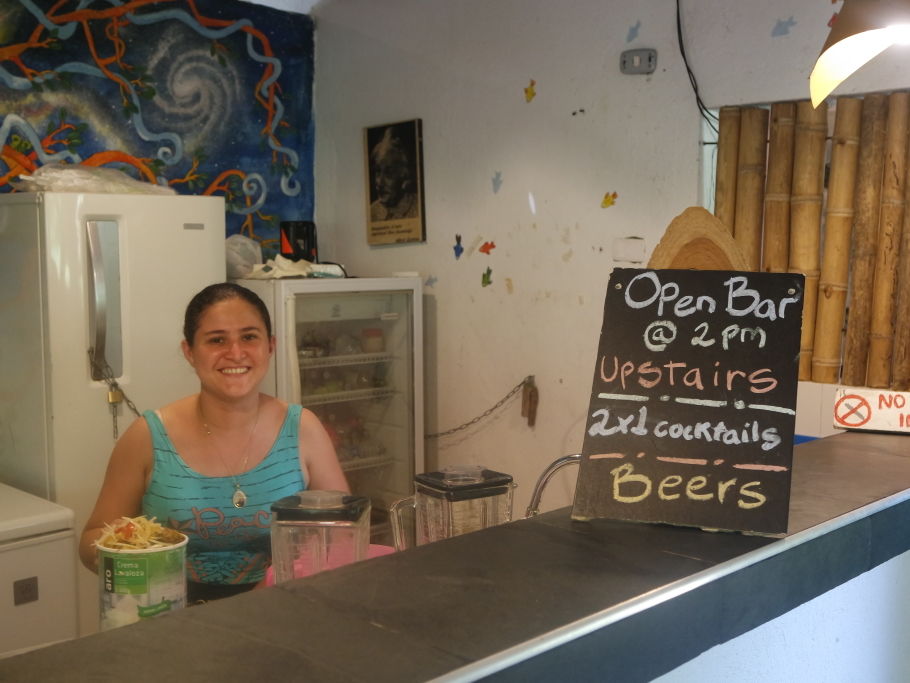 Open Bar
@ 2 pm
Upstairs
2x1 cocktails
Beers
NO
Peace
aro
Crema
Lavaloza